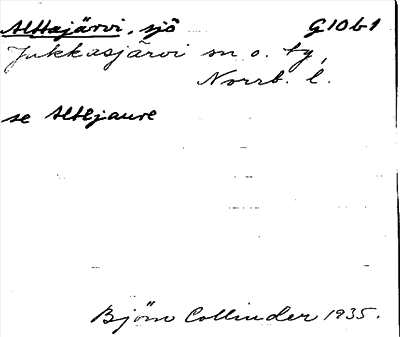 Alttajärvi, sjö G10b1
Jukkasjärvi sn o. tg,
Norrb. l.
se Altejaure
Björn Collinder 1935.